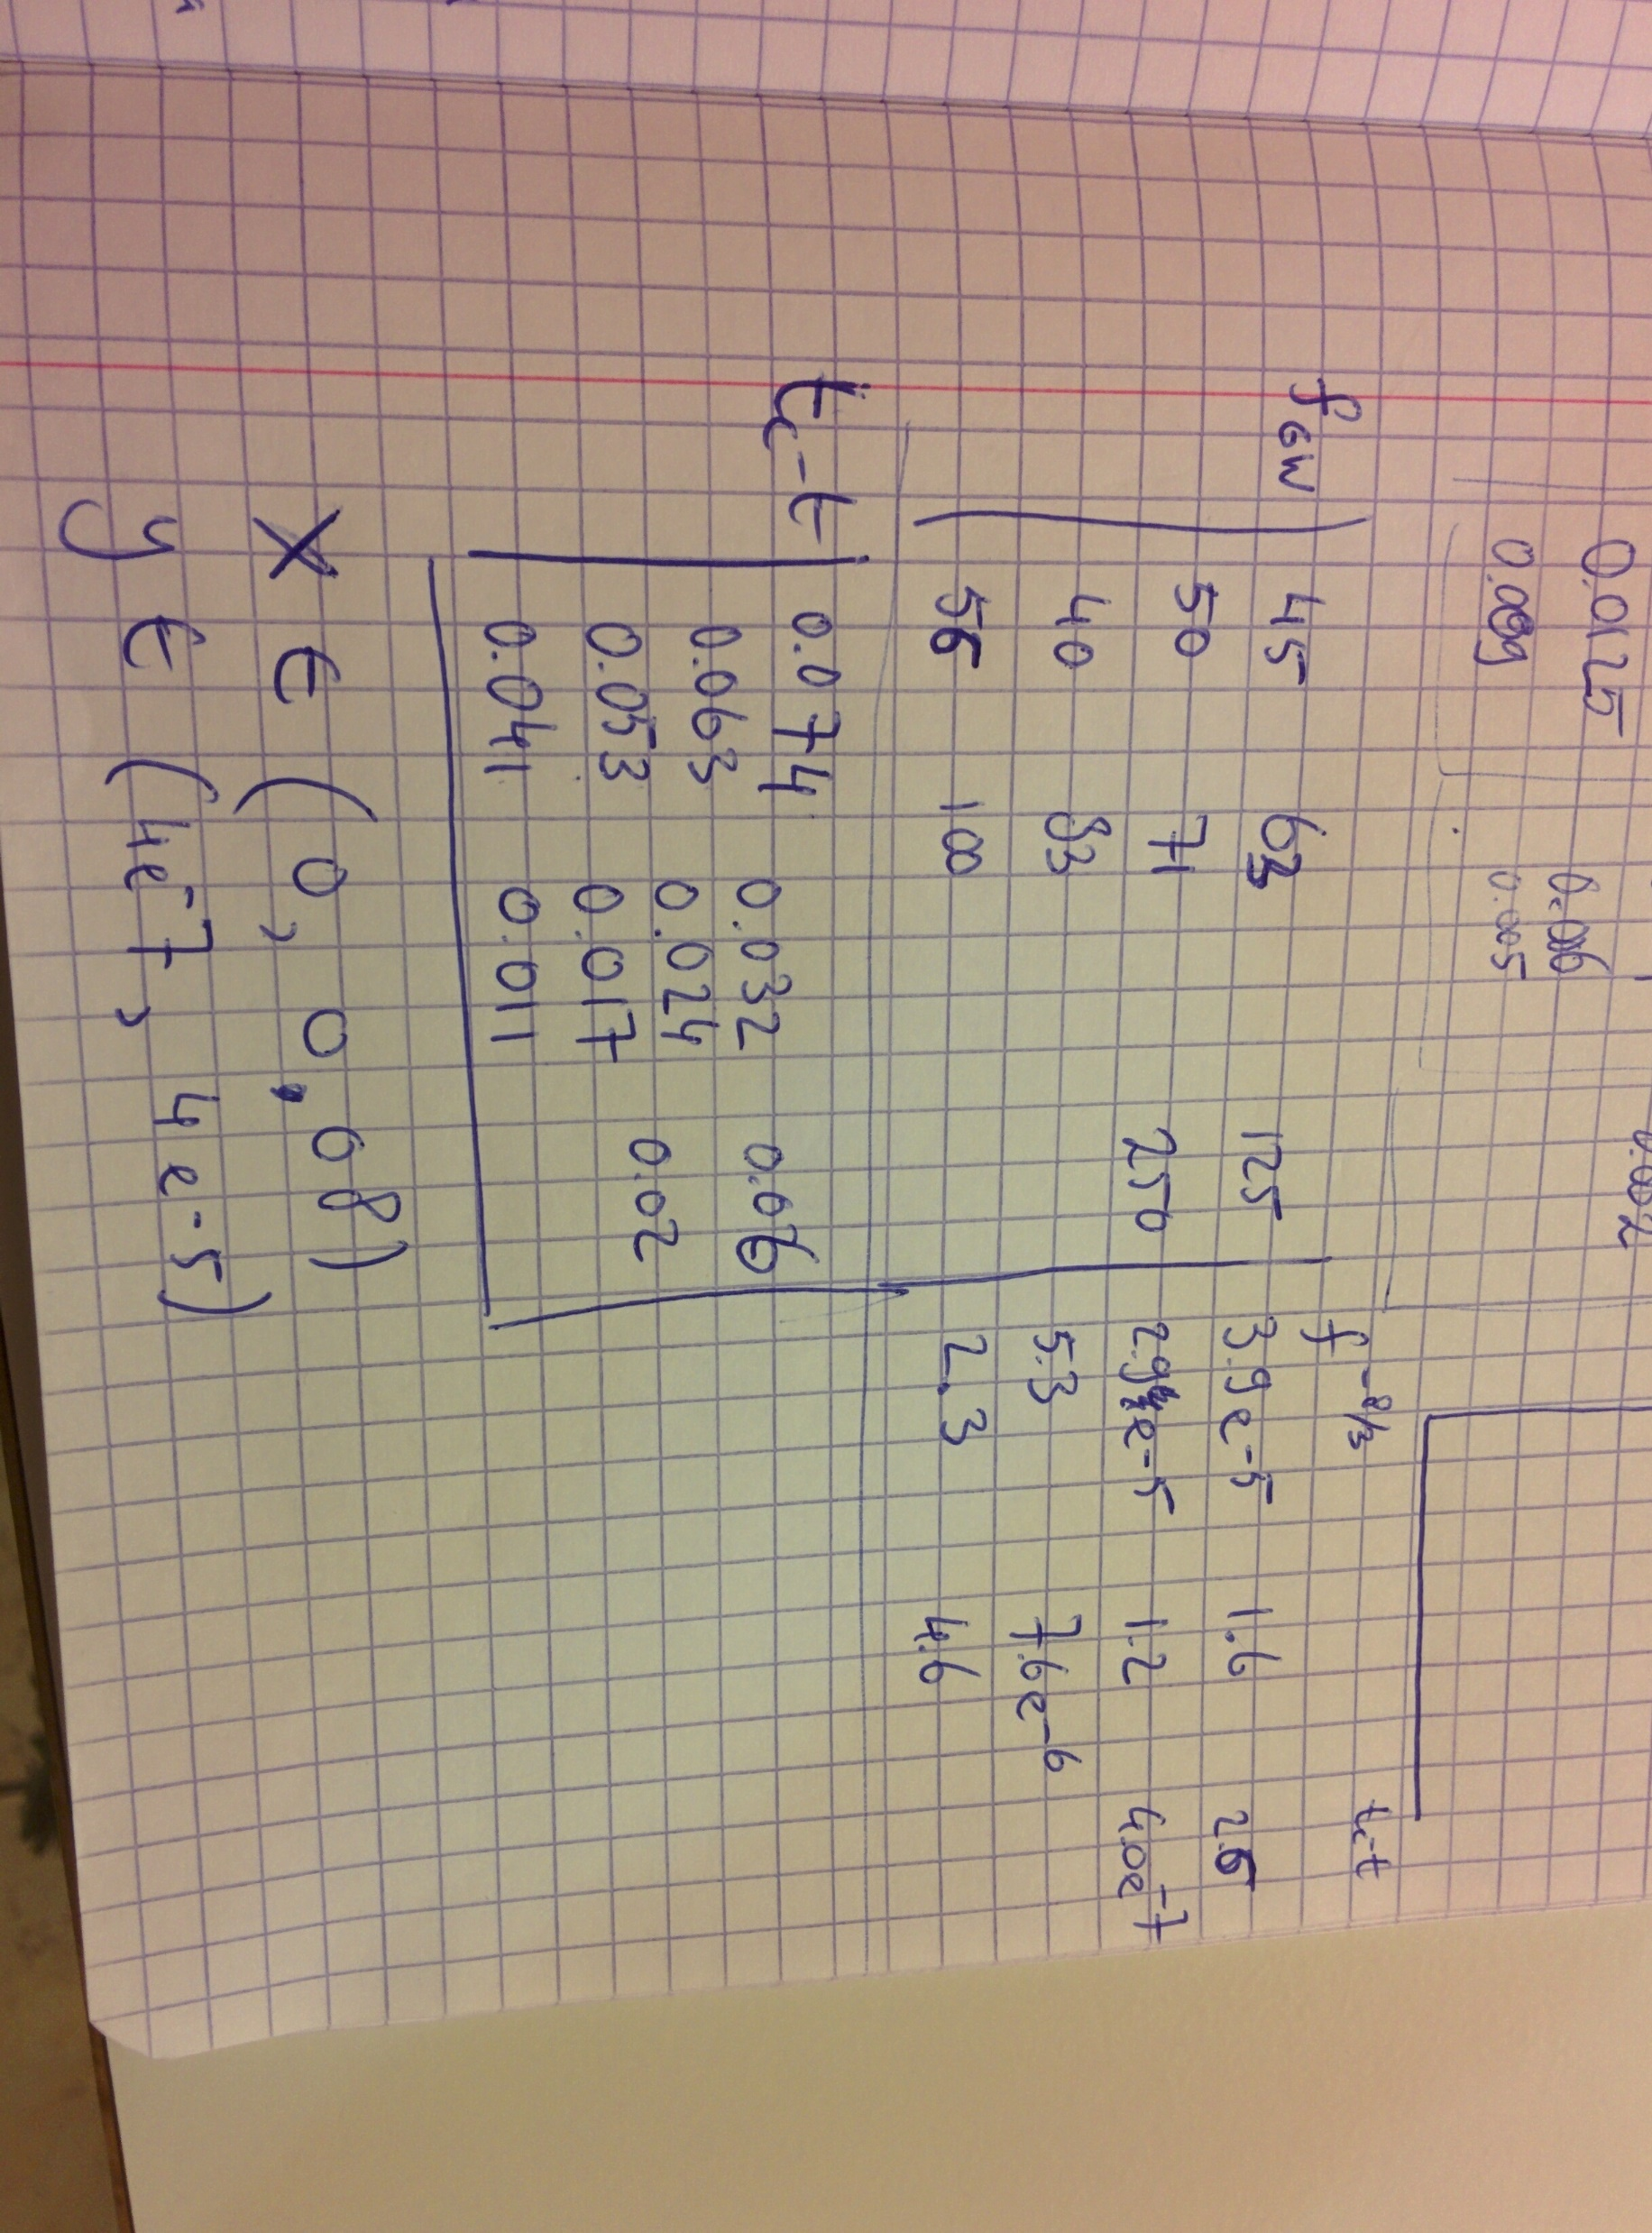 0.002
0.0125 0.006
0.009 0.005
f^-8/3 tc-t
fGW 45 63 125 3.9e-5 1.6 2.6
50 71 250 2.9e-5 1.2 4.0e-7
40 83 5.3 7.6e-6
56 100 2.3 4.6
tc-t 0.074 0.032 0.06
0.063 0.024 0.02
0.053 0.017
0.041 0.011
x ∈ (0, 0.08)
y ∈ (4e-7, 4e-5)